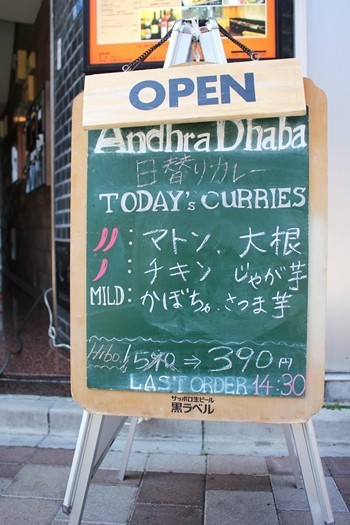 OPEN
Andhra Dhaba
日替りカレー
TODAY's CURRIES
: マトン、大根
: チキン じゃが芋
MILD: かぼちゃ、さつま芋
⇒ 390円
LAST ORDER 14:30
サッポロ生ビール
黒ラベル